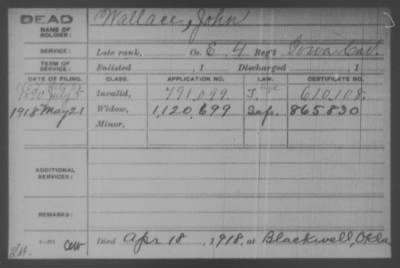 DEAD
NAME OF SOLDIER:
Wallace, John
SERVICE:
Late rank, Co. E, 4 Reg't Iowa Cav.
TERM OF SERVICE:
Enlisted , 1 Discharged , 1
DATE OF FILING. CLASS. APPLICATION NO. LAW. CERTIFICATE NO.
1890 July Invalid, 791,099 J. 610,108.
1918 May 21 Widow, 1,120,699 Sep. 865830
Minor,
ADDITIONAL SERVICES:
REMARKS:
Died Apr 18, 1918, at Blackwell, Okla